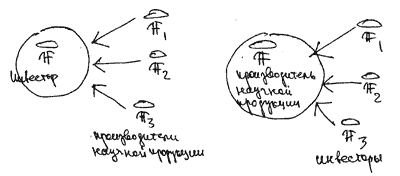 #
инвестор
#1
#2
#3
производители
научной продукции
#
производитель
научной
продукции
#1
#2
#3
инвесторы